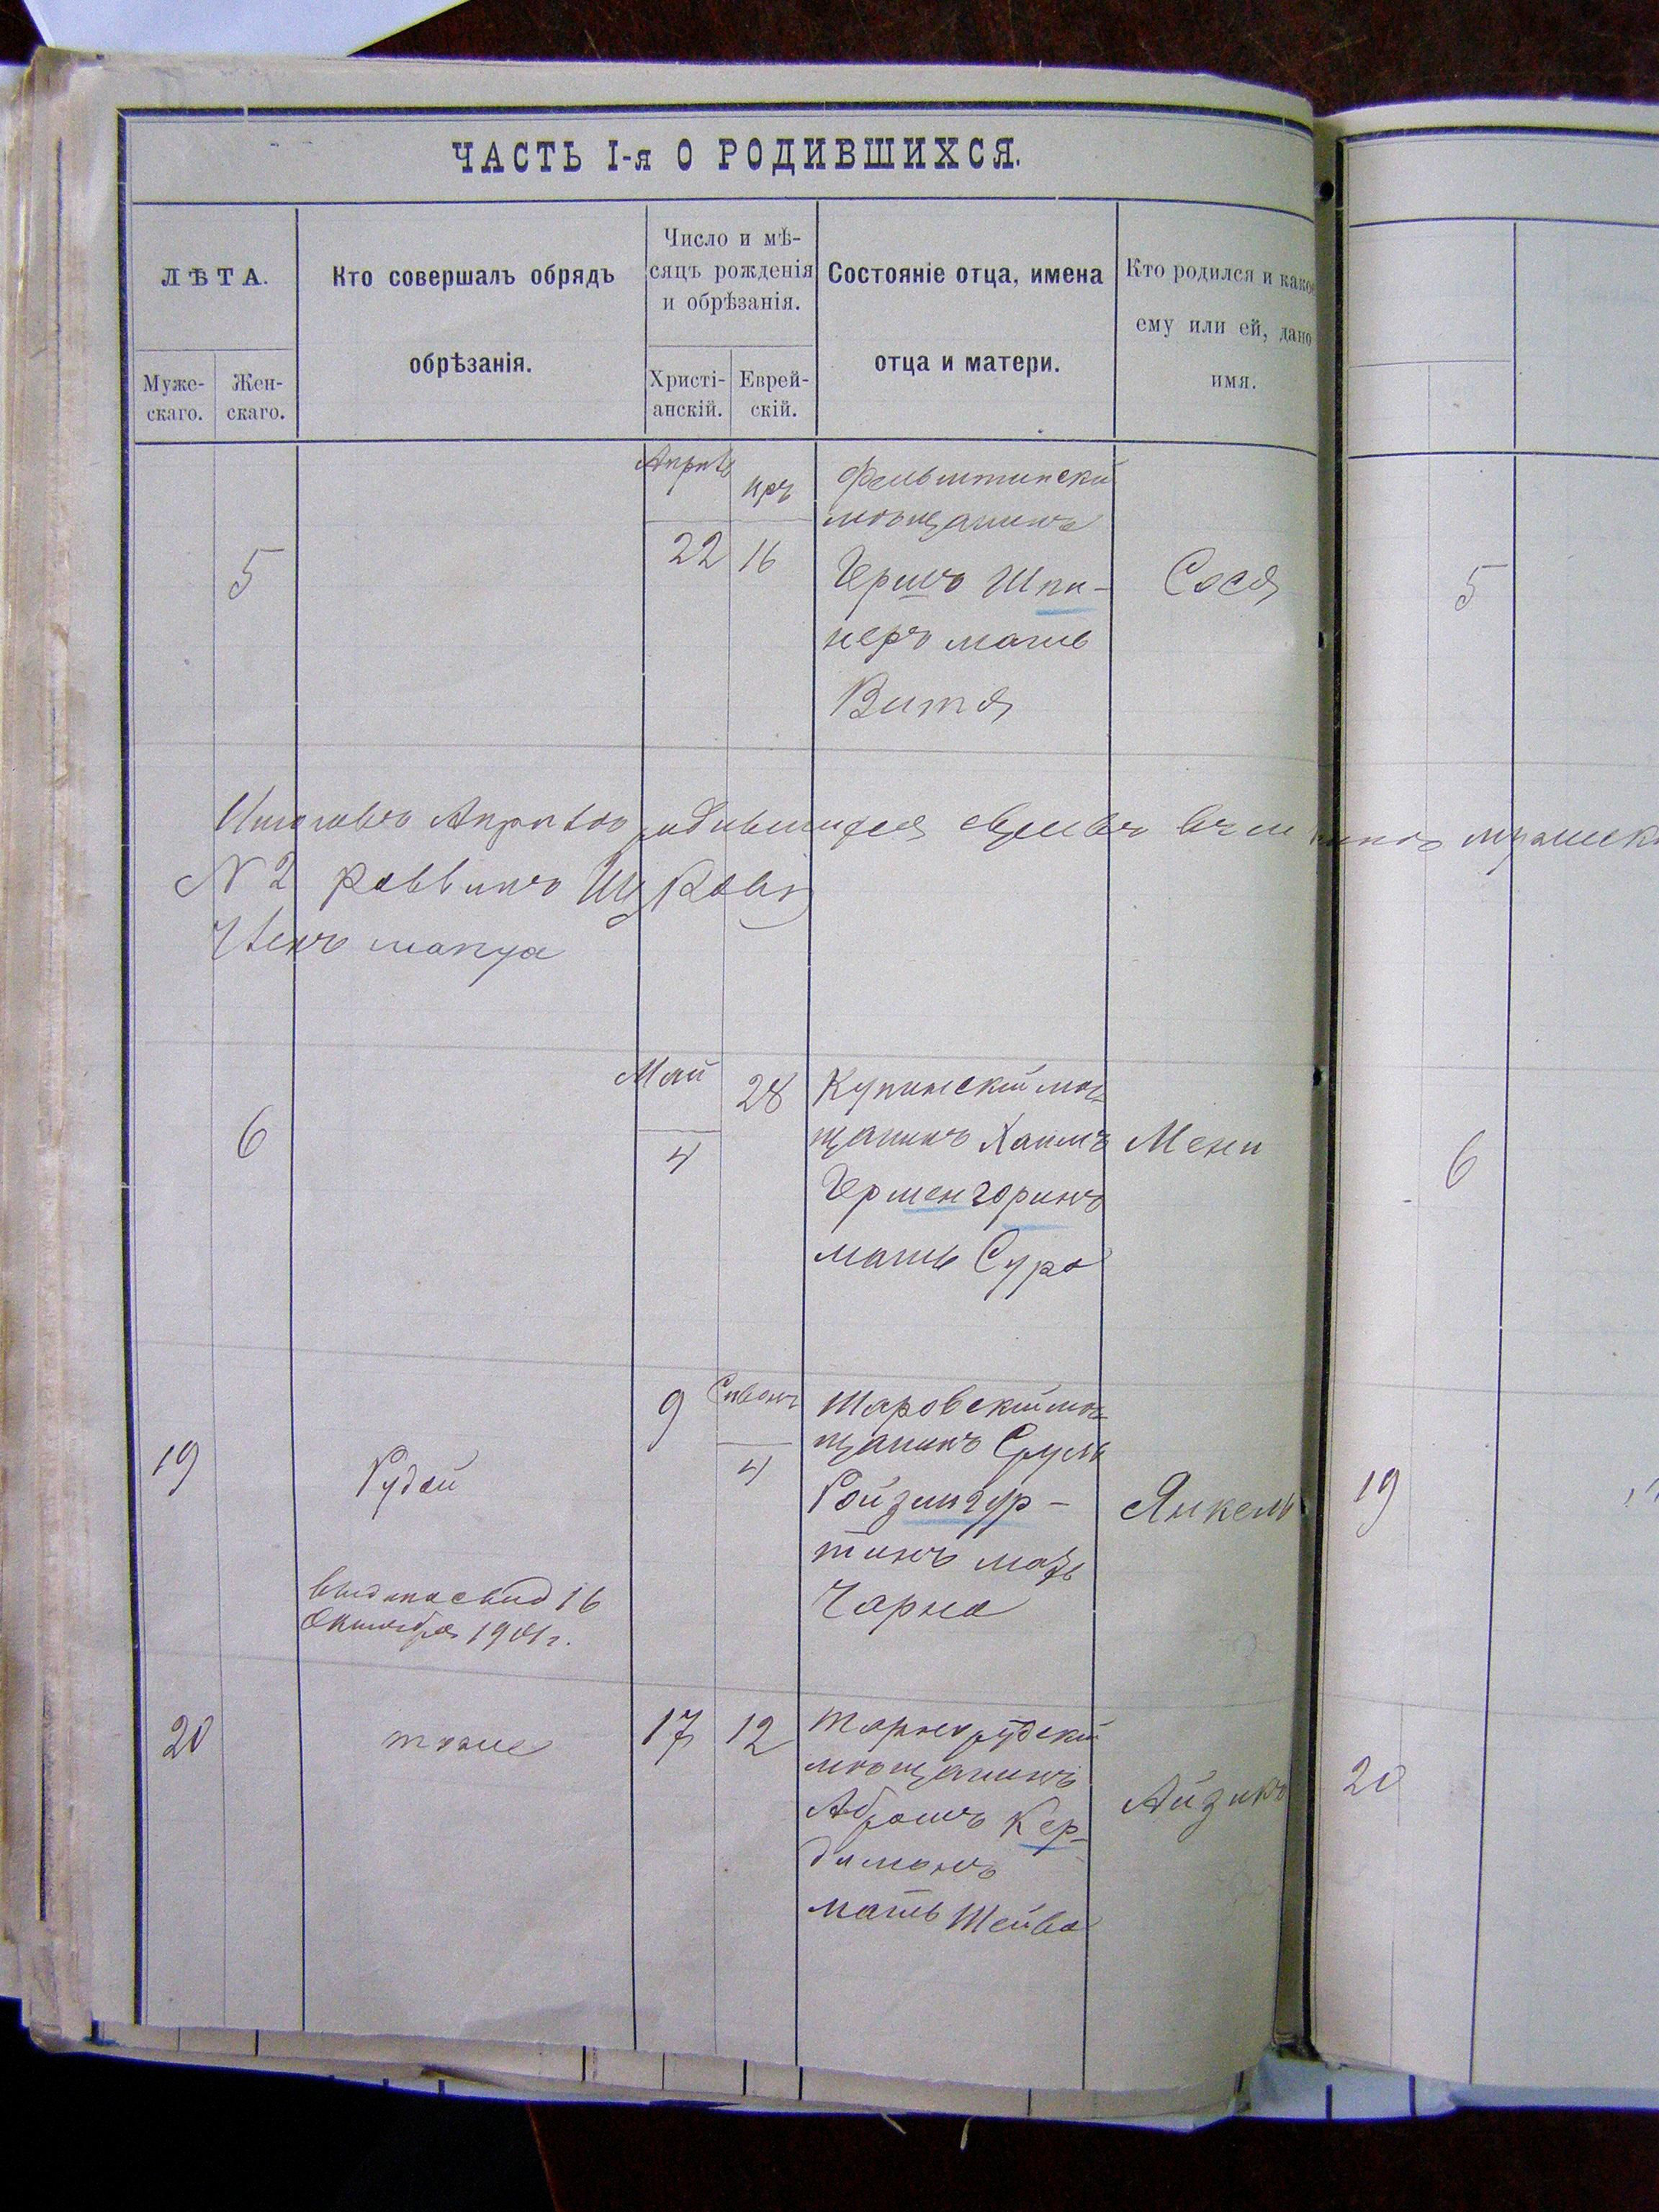 ЧАСТЬ I-я О РОДИВШИХСЯ.
ЛѢТА.
Муже-
скаго.
Жен-
скаго.
Кто совершалъ обрядъ
обрѣзанія.
Число и мѣ-
сяцъ рожденія
и обрѣзанія.
Христі-
анскій.
Еврей-
скій.
Состояніе отца, имена
отца и матери.
Кто родился и какое
ему или ей, дано
имя.
5
Апрѣль
22
иръ
16
Фельштинскій
мѣщанинъ
Гершъ Шпи-
неръ мать
Витя
Сося
5
Апрѣль родившихся
№ 2 Раввинъ
Членъ
6
Май
4
28
Купинскій мѣ-
щанинъ Хаимъ
Герменгоринъ
мать Сура
Мени
6
19
Рудой
9
Сиванъ
4
Шаровскій мѣ-
щанинъ Сруль
Ройзенгур-
тинъ мать
Чарна
Янкель
19
выдано свид 16
Октября 1901 г.
20
тоже
17
12
Тарнорудскій
мѣщанинъ
Абрамъ Кер-
диманъ
мать Шейва
Айзикъ
20